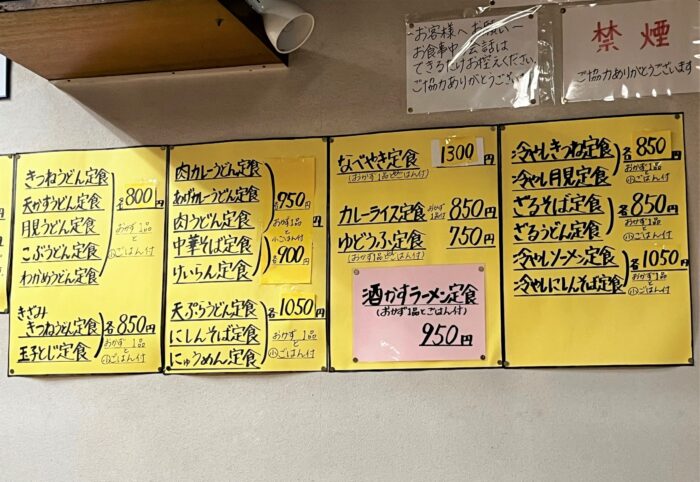 お客様へお願い〜
お食事中の会話は
できるだけお控えください
ご協力ありがとうござい
禁煙
ご協力ありがとうございます
きつねうどん定食
天かすうどん定食
月見うどん定食
こぶうどん定食
わかめうどん定食
各800円
おかず1品
と
㋛ごはん付
きざみ
きつねうどん定食
玉子とじ定食
各850円
おかず1品
と
㊉ごはん付
肉カレーうどん定食
あげカレーうどん定食
肉うどん定食
中華そば定食
けいらん定食
各950円
おかず1品
と
小ごはん付
各900
天ぷらうどん定食
にしんそば定食
にゅうめん定食
各1050円
おかず1品
と
小ごはん付
なべやき定食 1300円
(おかず1品とごはん付)
カレーライス定食 おかず1品付 850円
ゆどうふ定食 750円
(おかず1品とごはん付)
酒かすラーメン定食
(おかず1品とごはん付)
950円
冷やしきつね定食
冷やし月見定食
各850円
おかず1品
と
小ごはん付
ざるそば定食
ざるうどん定食
各850円
おかず1品
と
小ごはん付
冷やしソーメン定食
冷やしにしんそば定食
各1050円
おかず1品
と
小ごはん付